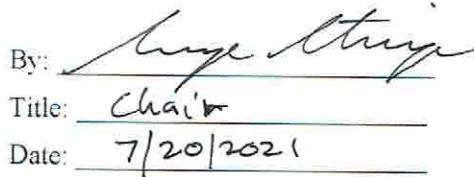 By:
Title: Chair
Date: 7/20/2021